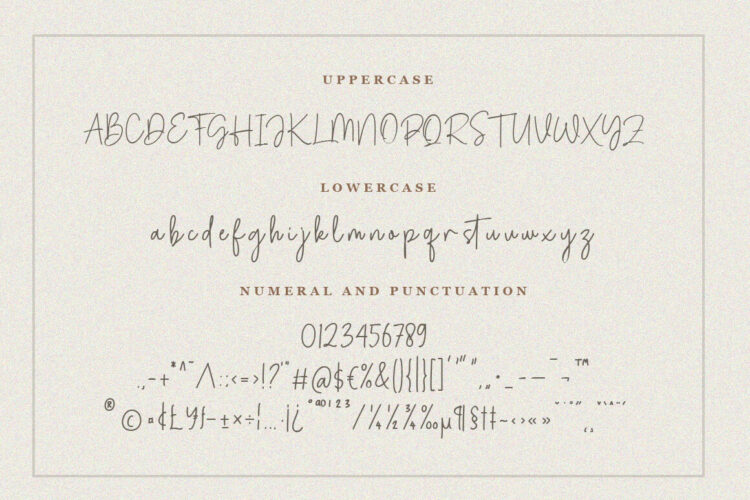 UPPERCASE
ABCDEFGHIJKLMNOPQRSTUVWXYZ
LOWERCASE
abcdefghijklmnopqrstuvwxyz
NUMERAL AND PUNCTUATION
0123456789
.,-+*^~/\:;<=>!?'"#@$€%&(){|}[]'"",„•_–—¯¬™
®©¤¢£¥ƒ–±×÷¦…·¡¿°ªº123/¼½¾‰µ¶§†‡~‹›«»